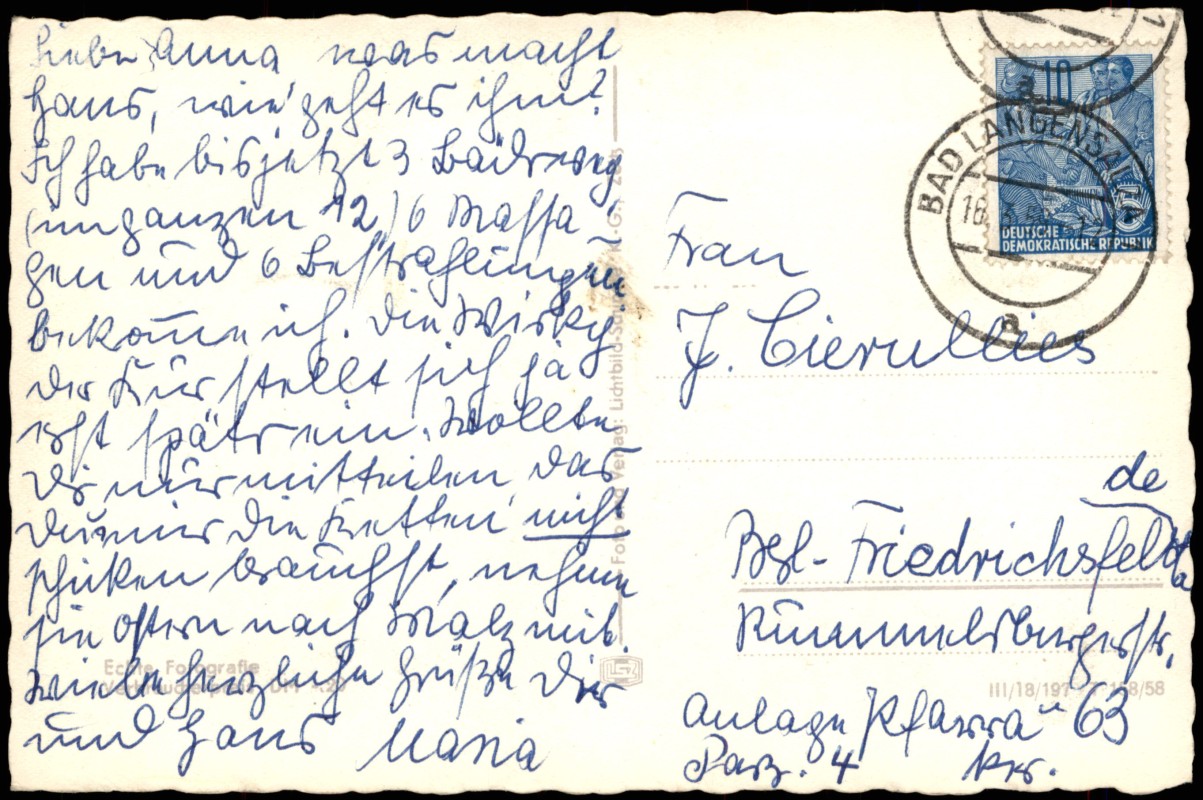 Liebe Anna was macht
Hans, wie geht es ihm?
Ich habe bis jetzt 3 Bäder weg
(im ganzen 12) 6 Massa
gen und 6 Bestrahlungen
bekomme ich. Die Wirkg
der Kur stellt sich ja
erst später ein. Wollte
Dir nur mitteilen, das
Du mir die Ketten nicht
schicken brauchst, nehme
sie Ostern nach mit.
Viele herzliche Grüße Dir
und Hans Maria
Echte Fotografie
Foto und Verlag: Lichtbild-
10
BAD LANGENSALZA
a
a
DEUTSCHE
DEMOKRATISCHE REPUBLIK
5
Frau
J. Cierullies
de
Bef- Friedrichsfelde
Rummelsburgerstr.
Anlage Pfarra" 63
Parz. 4
III/18/197 158/58